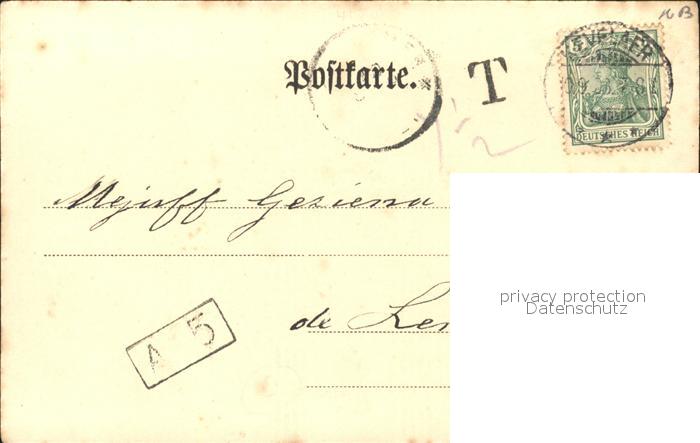 Postkarte.
T
5
DEUTSCHES REICH
Mejuff Gesiena
de
A 5
privacy protection
Datenschutz